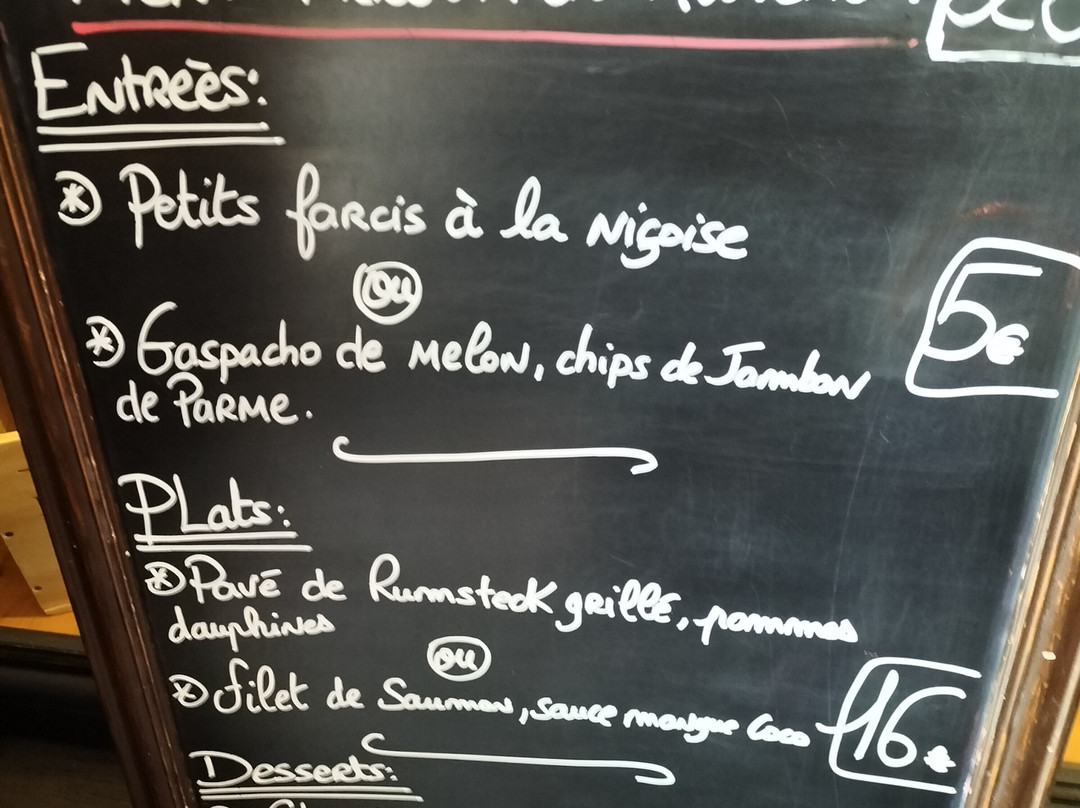 Entrées:
* Petits farcis à la Niçoise
ou
* Gaspacho de melon, chips de Jambon
de Parme.
5€
Plats:
* Pavé de Rumsteck grillé, pommes
dauphines
ou
* filet de Saumon, sauce mangue Coco
16€
Desserts: